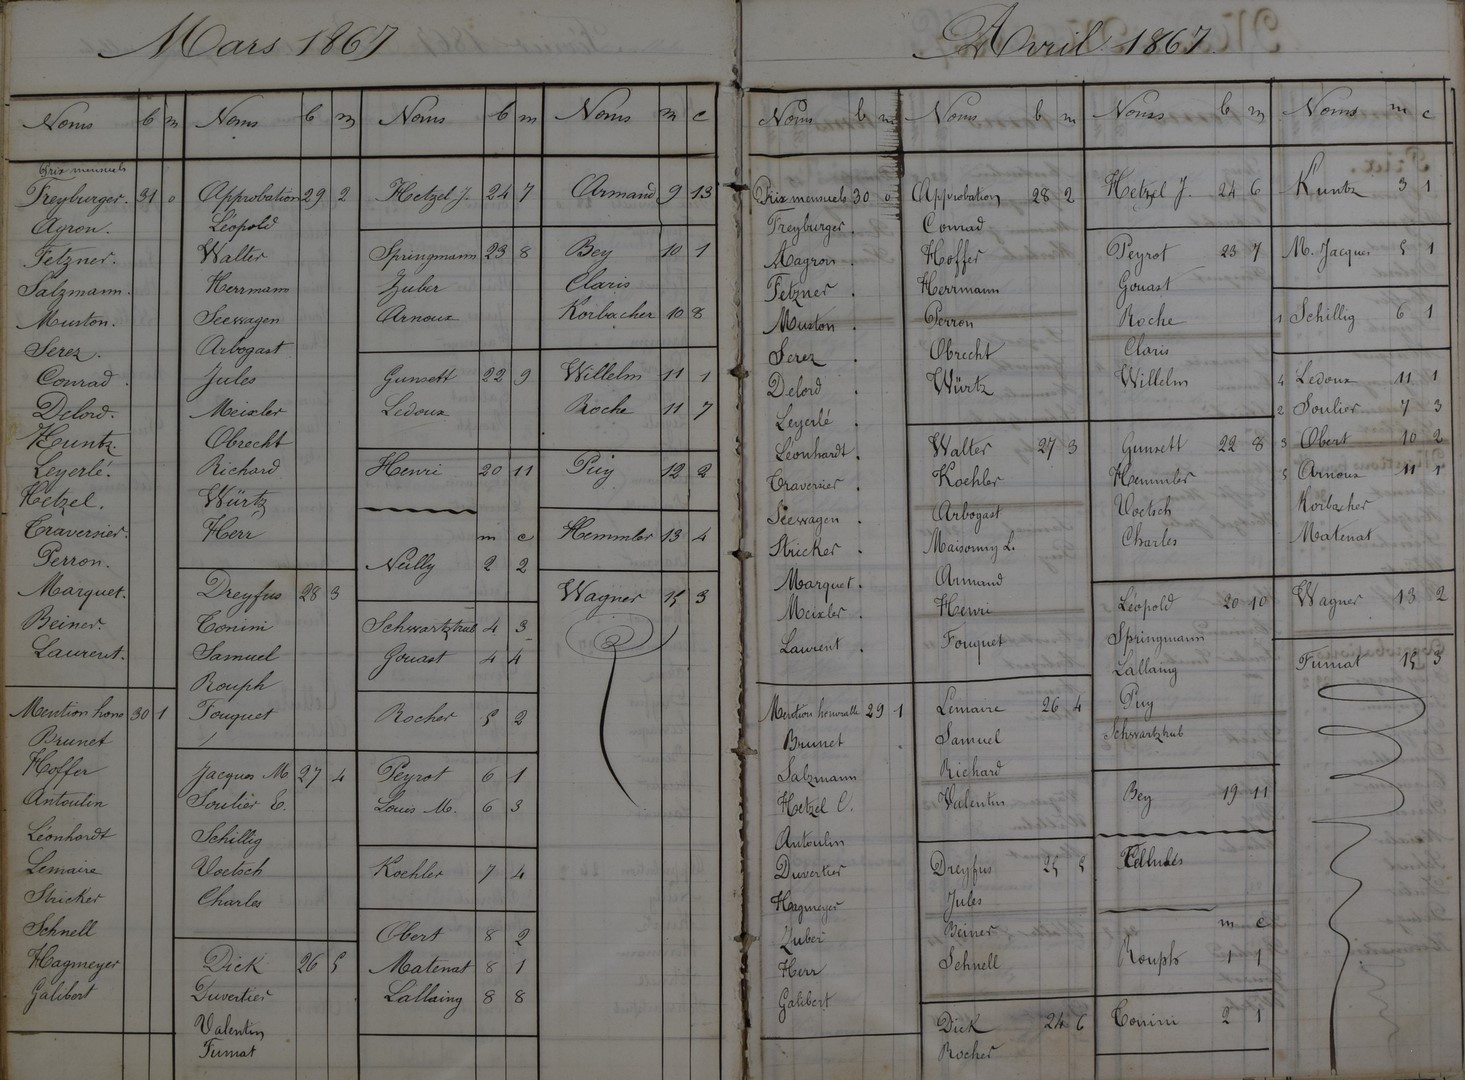 Mars 1867
Noms b m
Prix mensuels
Freyburger. 31 0
Ayron.
Fetzner.
Salzmann.
Muston.
Serez.
Conrad.
Delord.
Kuntz
Leyerlé.
Hetzel.
Traversier.
Perron.
Marquet.
Beiner.
Laurent.
Mention hono 30 1
Brunet
Hoffer
Antoulin
Léonhardt
Lemaire
Stricker
Schnell
Hagmeyer
Galibert
Noms b m
Approbation 29 2
Léopold
Walter
Herrmann
Seewagen
Arbogast
Jules
Meixler
Obrecht
Richard
Würtz
Herr
Dreyfus 28 3
Tonini
Samuel
Rouph
Fouquet
Jacques M 27 4
Soulier E.
Schillig
Voetsch
Charles
Dick 26 5
Duvertier
Valentin
Fumat
Noms b m
Hetzel J. 24 7
Springmann 23 8
Zuber
Arnoux
Gunsett 22 9
Ledoux
Henri 20 11
m c
Neilly 2 2
Schwartztrub 4 3
Gouast 4 4
Rocher 5 2
Peyrot 6 1
Louis M. 6 3
Koehler 7 4
Obert 8 2
Matenat 8 1
Lallaing 8 8
Noms m c
Armand 9 13
Bey 10 1
Claris
Korbacher 10 8
Willelm 11 1
Roche 11 7
Puy 12 2
Hemmler 13 4
Wagner 15 3
Avril 1867
Noms b m
Prix mensuels 30 0
Freyburger.
Magron.
Fetzner.
Muston.
Serez.
Delord.
Leyerlé.
Léonhardt.
Traversier.
Seewagen.
Stricker.
Marquet.
Meixler.
Laurent.
Mention honorable 29 1
Brunet.
Salzmann
Hetzel C.
Antoulin
Duvertier
Hagmeyer
Zuber
Herr
Galibert
Noms b m
Approbation 28 2
Conrad
Hoffer
Herrmann
Perron
Obrecht
Würtz
Walter 27 3
Koehler
Arbogast
Maisonny L.
Armand
Henri
Fouquet
Lemaire 26 4
Samuel
Richard
Valentin
Dreyfus 25 5
Jules
Beiner
Schnell
Dick 24 6
Rocher
Noms b m
Hetzel J. 24 6
Peyrot 23 7
Gouast
Roche
Claris
Willelm
Gunsett 22 8
Hemmler
Voetsch
Charles
Léopold 20 10
Springmann
Lallaing
Puy
Schwartztrub
Bey 19 11
m c
Rouph 1 1
Tonini 2 1
Noms m c
Kuntz 3 1
M. Jacques 5 1
1 Schillig 6 1
4 Ledoux 11 1
2 Soulier 7 3
3 Obert 10 2
5 Arnoux 11 1
Korbacher
Matenat
Wagner 13 2
Fumat 15 3